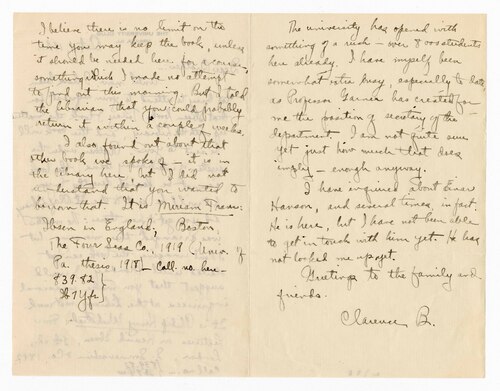 I believe there is no limit on the
time you may keep the book, unless
it should be needed here for a course,
something which I made no attempt
to find out this morning. But I told
the librarian that you could probably
return it within a couple of weeks.
I also found out about that
other book we spoke of – it is in
the library here, but I did not
understand that you wanted to
borrow that. It is Miriam Franc:
Ibsen in England, Boston,
The Four Seas Co., 1919 (Univ. of
Pa. thesis, 1918) – Call. no. here –
839.82
The university has opened with
something of a rush – over 8000 students
here already. I have myself been
somewhat extra busy, especially to date,
as Professor has created for
me the position of secretary of the
department. I am not quite sure
yet just how much that does
imply – enough anyway.
I have inquired about Einar
Hanson, and several times, in fact.
He is here, but I have not been able
to get in touch with him yet. He has
not looked me up yet.
Greetings to the family and
friends.
Clarence B.